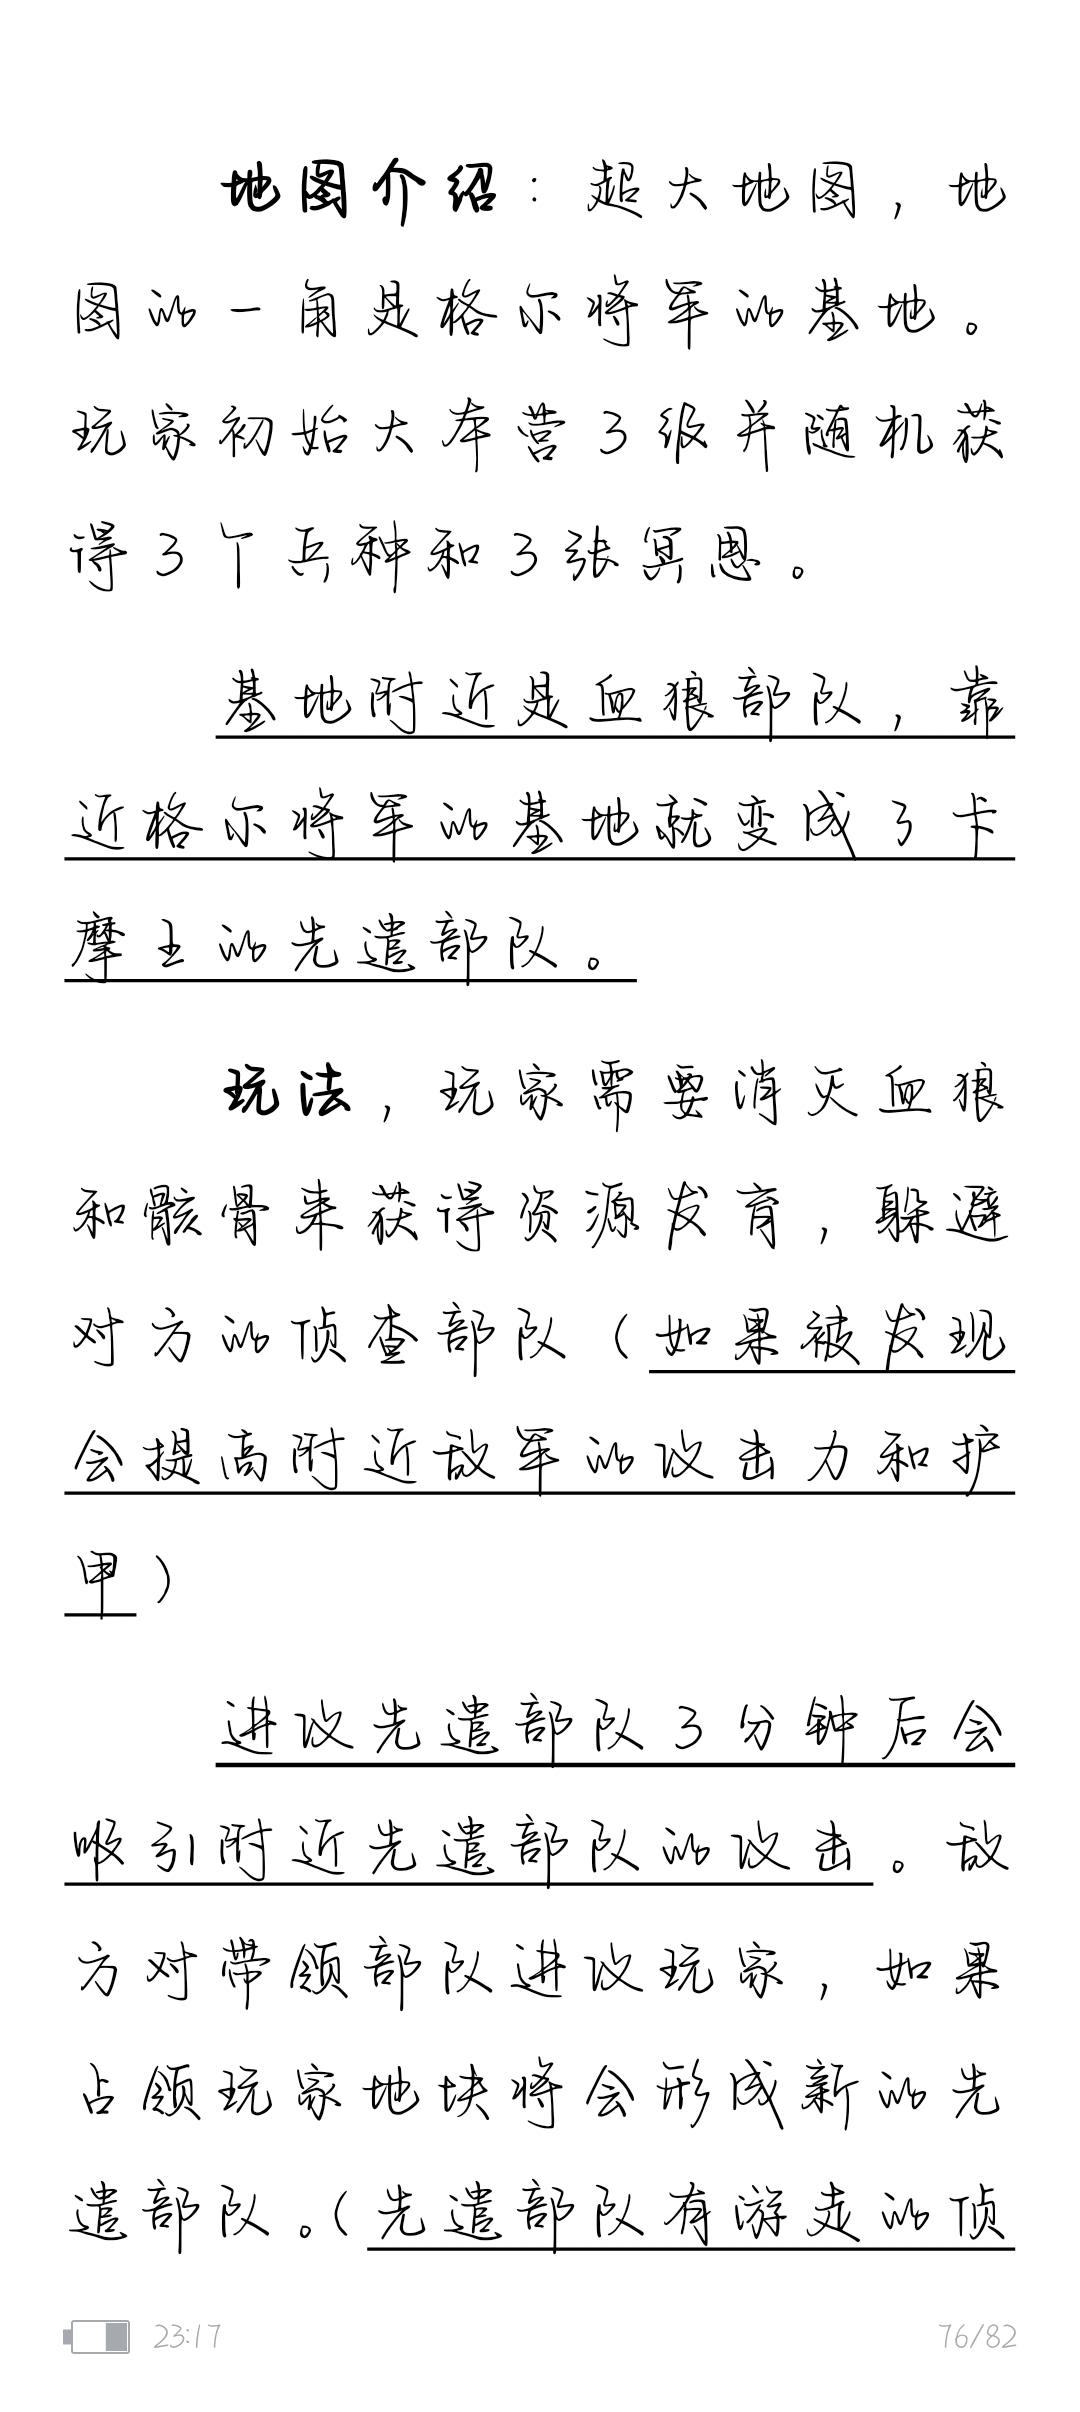 地图介绍：超大地图，地
图的一角是格尔将军的基地。
玩家初始大本营3级并随机获
得3个兵种和3张冥恩。
基地附近是血狼部队，靠
近格尔将军的基地就变成了卡
摩王的先遣部队。
玩法，玩家需要消灭血狼
和骸骨来获得资源发育，躲避
对方的侦查部队（如果被发现
会提高附近敌军的攻击力和护
甲）
进攻先遣部队3分钟后会
吸引附近先遣部队的攻击。敌
方对带领部队进攻玩家，如果
占领玩家地块将会形成新的先
遣部队。（先遣部队有游走的侦
23:17 76/82